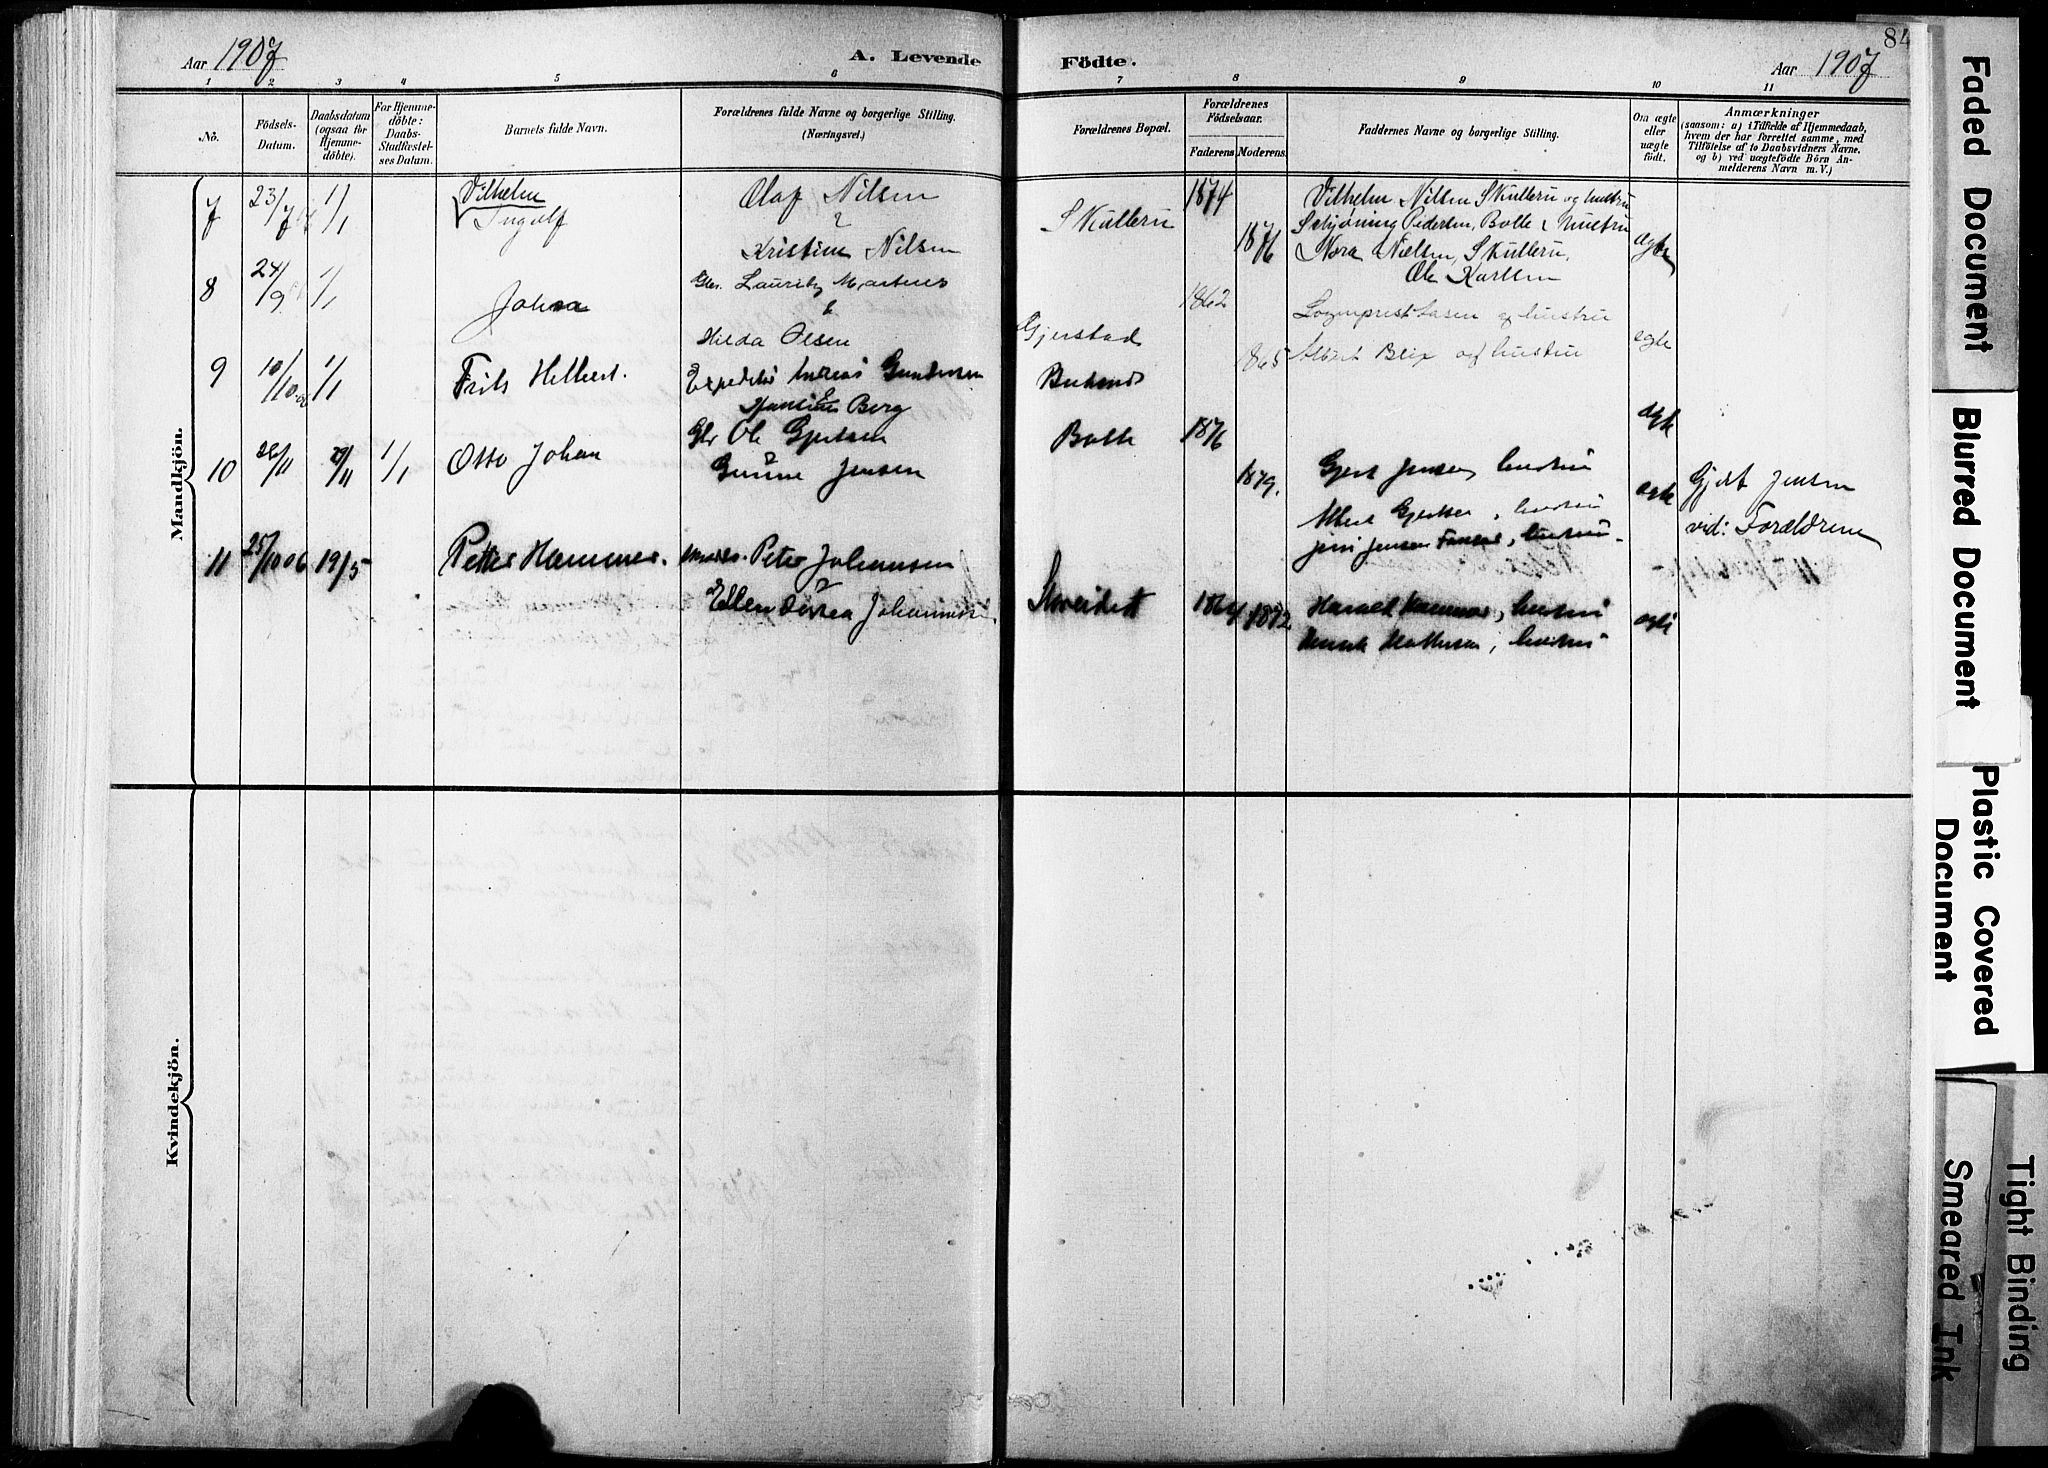 84
Aar 1907
A. Levende
Födte.
Aar 1907
1 2 3 4 5 6 7 8 9 10 11
Nö.
Födsels-
Datum.
Daabsdatum
(ogsaa for
Hjemme-
döbte).
For Hjemme-
döbte:
Daabs-
Stadfæstel-
ses Datum.
Barnets fulde Navn.
Forældrenes fulde Navne og borgerlige Stilling.
(Næringsvei.)
Forældrenes Bopæl.
Forældrenes
Födselsaar.
Faderens. Moderens.
Faddernes Navne og borgerlige Stilling.
Om ægte
eller
uægte
födt.
Anmærkninger
(saasom: a) i Tilfælde af Hjemmedaab,
hvem der har forrettet samme, med
Tilföielse af to Daabsvidners Navne.
og b) ved uægtefödte Börn An-
melderens Navn m. V.)
Mandkjön.
7 23/7 1/1 Vilhelm
Ingolf
Olaf Nilsen
Kristine Nilsen
Skulleru 1874
1876
Vilhelm Nilsen Skulleru og hustru
Schjøning Pedersen, Bolle & hustru
Nora Nielsen, Skulleru,
Ole Karlsen
ægte
8 24/9 1/1 Johan
Lauritz Martens
&
Hilda Olsen
Gjerstad 1862
1865
og hustru
Albert Blix og hustru
egte
9 10/10 06 1/1 Frits Helbert.
Andreas Gundersen
Berg
ægte
10 26/11 29/11 1/1 Otto Johan
Gbr Ole Gjertsen
Jensen
Bolle 1876
1879.
Gjert Jensen, hustru
Albert Gjertsen, hustru
Jensen, hustru.
ægte
Gjert Jensen
vid: Forældrene
11 25/10 06 19/5 Petter Hammer.
Peter Johannesen
Ellen Johannesen
1864 1872
Harald Hammer, hustru
Henrik Mathisen, hustru
egte
Kvindekjön.
Faded Document
Blurred Document
Plastic Covered
Document
Tight Binding
Smeared Ink